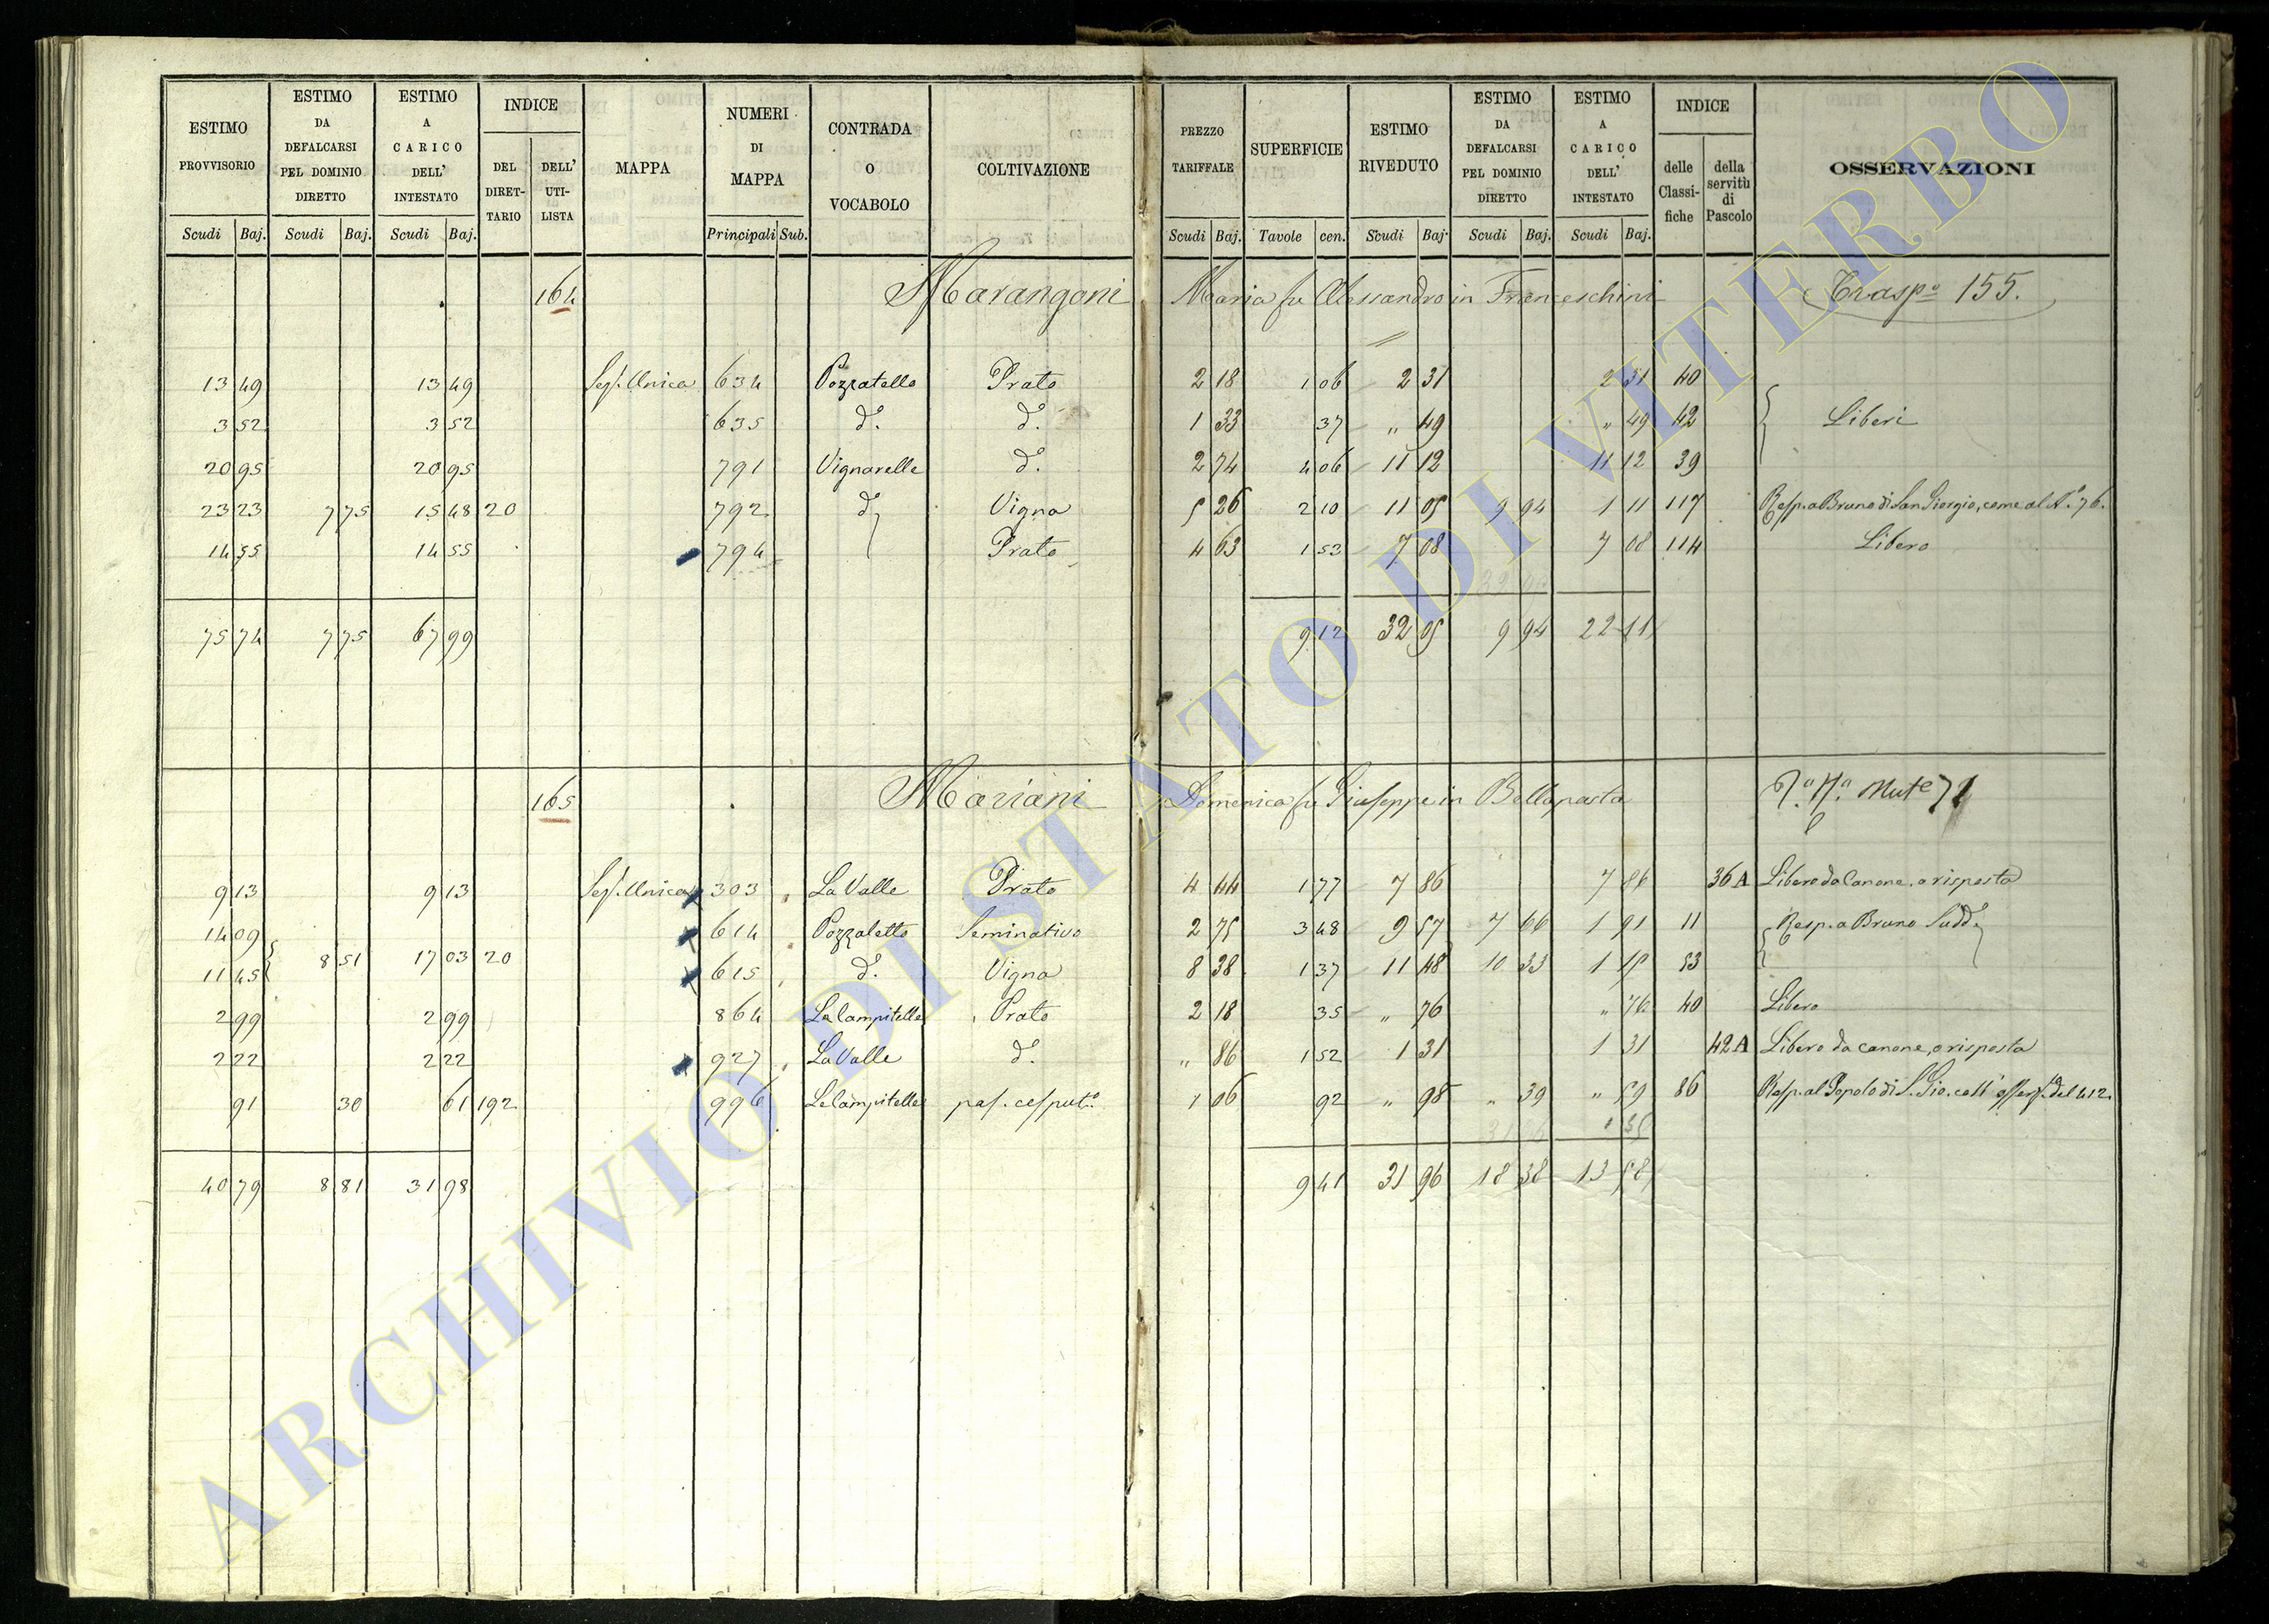 ESTIMO PROVVISORIO | ESTIMO DA DEFALCARSI PEL DOMINIO DIRETTO | ESTIMO A CARICO DELL' INTESTATO | INDICE DEL DIRET-TARIO | DELL' UTI-LISTA | MAPPA | NUMERI DI MAPPA | CONTRADA O VOCABOLO | COLTIVAZIONE | PREZZO TARIFFALE | SUPERFICIE | ESTIMO RIVEDUTO | ESTIMO DA DEFALCARSI PEL DOMINIO DIRETTO | ESTIMO A CARICO DELL' INTESTATO | INDICE delle Classi-fiche | della servitù di Pascolo | OSSERVAZIONI
Scudi Baj. Scudi Baj. Scudi Baj. Principali Sub. Scudi Baj. Tavole cen. Scudi Baj. Scudi Baj. Scudi Baj.
164 Marangoni Maria fu Alessandro in Franceschini Trasp.o 155.
13 49 13 49 Sez. Unica 634 Pozzatello Prato 2 18 1 06 2 31 2 31 40
3 52 3 52 635 d.o d.o 1 33 37 " 49 " 49 42 Liberi
20 95 20 95 791 Vignarelle d.o 2 74 4 06 11 12 11 12 39
23 23 7 75 15 48 20 792 d.o Vigna 5 26 2 10 11 05 9 94 1 11 117 Resp. a Bruno di San Giorgio, come al N.o 76.
14 55 14 55 794 Prato 4 63 1 53 7 08 7 08 114 Libero
75 74 7 75 67 99 9 12 32 05 9 94 22 11
165 Mariani Domenica fu Giuseppe in Bellapasta
9 13 9 13 Sez. Unica 303 La Valle Prato 4 44 1 77 7 86 7 86 36 A Libero da Canone, o risposta
14 09 614 Pozzaletto Seminativo 2 75 3 48 9 57 7 66 1 91 11 Resp. a Bruno Sudd.o
8 51 17 03 20
11 45 615 d.o Vigna 8 38 1 37 11 48 10 33 1 15 53
2 99 2 99 864 Le Campitelle Prato 2 18 35 " 76 " 76 40 Libero
2 22 2 22 927 La Valle d.o " 86 1 52 1 31 1 31 42 A Libero da canone, o risposta
91 30 61 192 996 Le Campitelle pas. cesput.o 1 06 92 " 98 " 39 " 59 86 Resp. al Popolo di S. Gio. coll' osserv.ne del 412.
40 79 8 81 31 98 9 41 31 96 18 38 13 58
ARCHIVIO DI STATO DI VITERBO